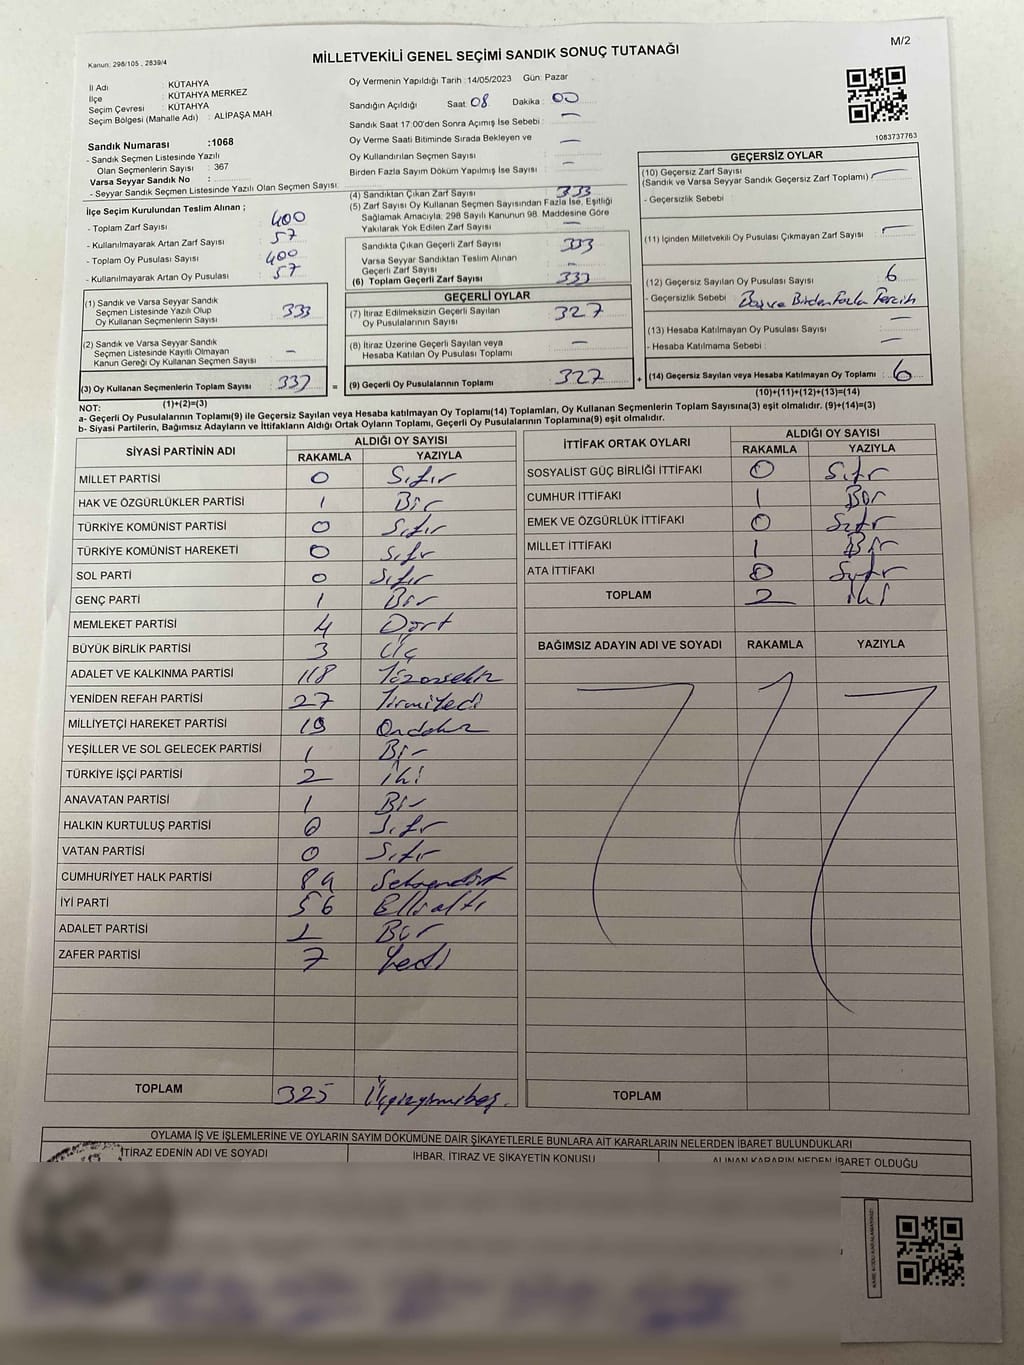 M/2
Kanun: 298/105 , 2839/4
MİLLETVEKİLİ GENEL SEÇİMİ SANDIK SONUÇ TUTANAĞI
İl Adı : KÜTAHYA
İlçe : KÜTAHYA MERKEZ
Seçim Çevresi : KÜTAHYA
Seçim Bölgesi (Mahalle Adı) : ALİPAŞA MAH
Sandık Numarası :1068
- Sandık Seçmen Listesinde Yazılı
Olan Seçmenlerin Sayısı : 367
Varsa Seyyar Sandık No :
- Seyyar Sandık Seçmen Listesinde Yazılı Olan Seçmen Sayısı:
İlçe Seçim Kurulundan Teslim Alınan ;
- Toplam Zarf Sayısı : 400
- Kullanılmayarak Artan Zarf Sayısı : 57
- Toplam Oy Pusulası Sayısı : 400
- Kullanılmayarak Artan Oy Pusulası : 57
(1) Sandık ve Varsa Seyyar Sandık
Seçmen Listesinde Yazılı Olup
Oy Kullanan Seçmenlerin Sayısı : 333
(2) Sandık ve Varsa Seyyar Sandık
Seçmen Listesinde Kayıtlı Olmayan
Kanun Gereği Oy Kullanan Seçmen Sayısı : –
(3) Oy Kullanan Seçmenlerin Toplam Sayısı : 333
(1)+(2)=(3)
Oy Vermenin Yapıldığı Tarih : 14/05/2023 Gün: Pazar
Sandığın Açıldığı Saat: 08 Dakika : 00
Sandık Saat 17.00'den Sonra Açımış İse Sebebi : –
Oy Verme Saati Bitiminde Sırada Bekleyen ve –
Oy Kullandırılan Seçmen Sayısı :
Birden Fazla Sayım Döküm Yapılmış İse Sayısı : –
(4) Sandıktan Çıkan Zarf Sayısı : 333
(5) Zarf Sayısı Oy Kullanan Seçmen Sayısından Fazla İse, Eşitliği
Sağlamak Amacıyla, 298 Sayılı Kanunun 98. Maddesine Göre
Yakılarak Yok Edilen Zarf Sayısı : –
Sandıkta Çıkan Geçerli Zarf Sayısı : 333
Varsa Seyyar Sandıktan Teslim Alınan
Geçerli Zarf Sayısı : –
(6) Toplam Geçerli Zarf Sayısı : 333
GEÇERLİ OYLAR
(7) İtiraz Edilmeksizin Geçerli Sayılan
Oy Pusulalarının Sayısı : 327
(8) İtiraz Üzerine Geçerli Sayılan veya
Hesaba Katılan Oy Pusulası Toplamı : –
= (9) Geçerli Oy Pusulalarının Toplamı : 327 +
1083737763
GEÇERSİZ OYLAR
(10) Geçersiz Zarf Sayısı
(Sandık ve Varsa Seyyar Sandık Geçersiz Zarf Toplamı) : –
- Geçersizlik Sebebi :
(11) İçinden Milletvekili Oy Pusulası Çıkmayan Zarf Sayısı : –
(12) Geçersiz Sayılan Oy Pusulası Sayısı : 6
- Geçersizlik Sebebi : Boş ve Birden Fazla Tercih
(13) Hesaba Katılmayan Oy Pusulası Sayısı : –
- Hesaba Katılmama Sebebi : –
(14) Geçersiz Sayılan veya Hesaba Katılmayan Oy Toplamı : 6
(10)+(11)+(12)+(13)=(14)
NOT:
a- Geçerli Oy Pusulalarının Toplamı(9) ile Geçersiz Sayılan veya Hesaba katılmayan Oy Toplamı(14) Toplamları, Oy Kullanan Seçmenlerin Toplam Sayısına(3) eşit olmalıdır. (9)+(14)=(3)
b- Siyasi Partilerin, Bağımsız Adayların ve İttifakların Aldığı Ortak Oyların Toplamı, Geçerli Oy Pusulalarının Toplamına(9) eşit olmalıdır.
SİYASİ PARTİNİN ADI ALDIĞI OY SAYISI
RAKAMLA YAZIYLA
MİLLET PARTİSİ 0 Sıfır
HAK VE ÖZGÜRLÜKLER PARTİSİ 1 Bir
TÜRKİYE KOMÜNİST PARTİSİ 0 Sıfır
TÜRKİYE KOMÜNİST HAREKETİ 0 Sıfır
SOL PARTİ 0 Sıfır
GENÇ PARTİ 1 Bir
MEMLEKET PARTİSİ 4 Dört
BÜYÜK BİRLİK PARTİSİ 3 Üç
ADALET VE KALKINMA PARTİSİ 118 Yüzonsekiz
YENİDEN REFAH PARTİSİ 27 Yirmiyedi
MİLLİYETÇİ HAREKET PARTİSİ 19 Ondokuz
YEŞİLLER VE SOL GELECEK PARTİSİ 1 Bir
TÜRKİYE İŞÇİ PARTİSİ 2 İki
ANAVATAN PARTİSİ 1 Bir
HALKIN KURTULUŞ PARTİSİ 0 Sıfır
VATAN PARTİSİ 0 Sıfır
CUMHURİYET HALK PARTİSİ 84 Seksendört
İYİ PARTİ 56 Ellialtı
ADALET PARTİSİ 1 Bir
ZAFER PARTİSİ 7 Yedi
TOPLAM 325 Üçyüzyirmibeş
İTTİFAK ORTAK OYLARI ALDIĞI OY SAYISI
RAKAMLA YAZIYLA
SOSYALİST GÜÇ BİRLİĞİ İTTİFAKI 0 Sıfır
CUMHUR İTTİFAKI 1 Bir
EMEK VE ÖZGÜRLÜK İTTİFAKI 0 Sıfır
MİLLET İTTİFAKI 1 Bir
ATA İTTİFAKI 0 Sıfır
TOPLAM 2 İki
BAĞIMSIZ ADAYIN ADI VE SOYADI RAKAMLA YAZIYLA
TOPLAM
OYLAMA İŞ VE İŞLEMLERİNE VE OYLARIN SAYIM DÖKÜMÜNE DAİR ŞİKAYETLERLE BUNLARA AİT KARARLARIN NELERDEN İBARET BULUNDUKLARI
İTİRAZ EDENİN ADI VE SOYADI İHBAR, İTİRAZ VE ŞİKAYETİN KONUSU ALINAN KARARIN NEDEN İBARET OLDUĞU
KARE KODU KARALAMAYINIZ!